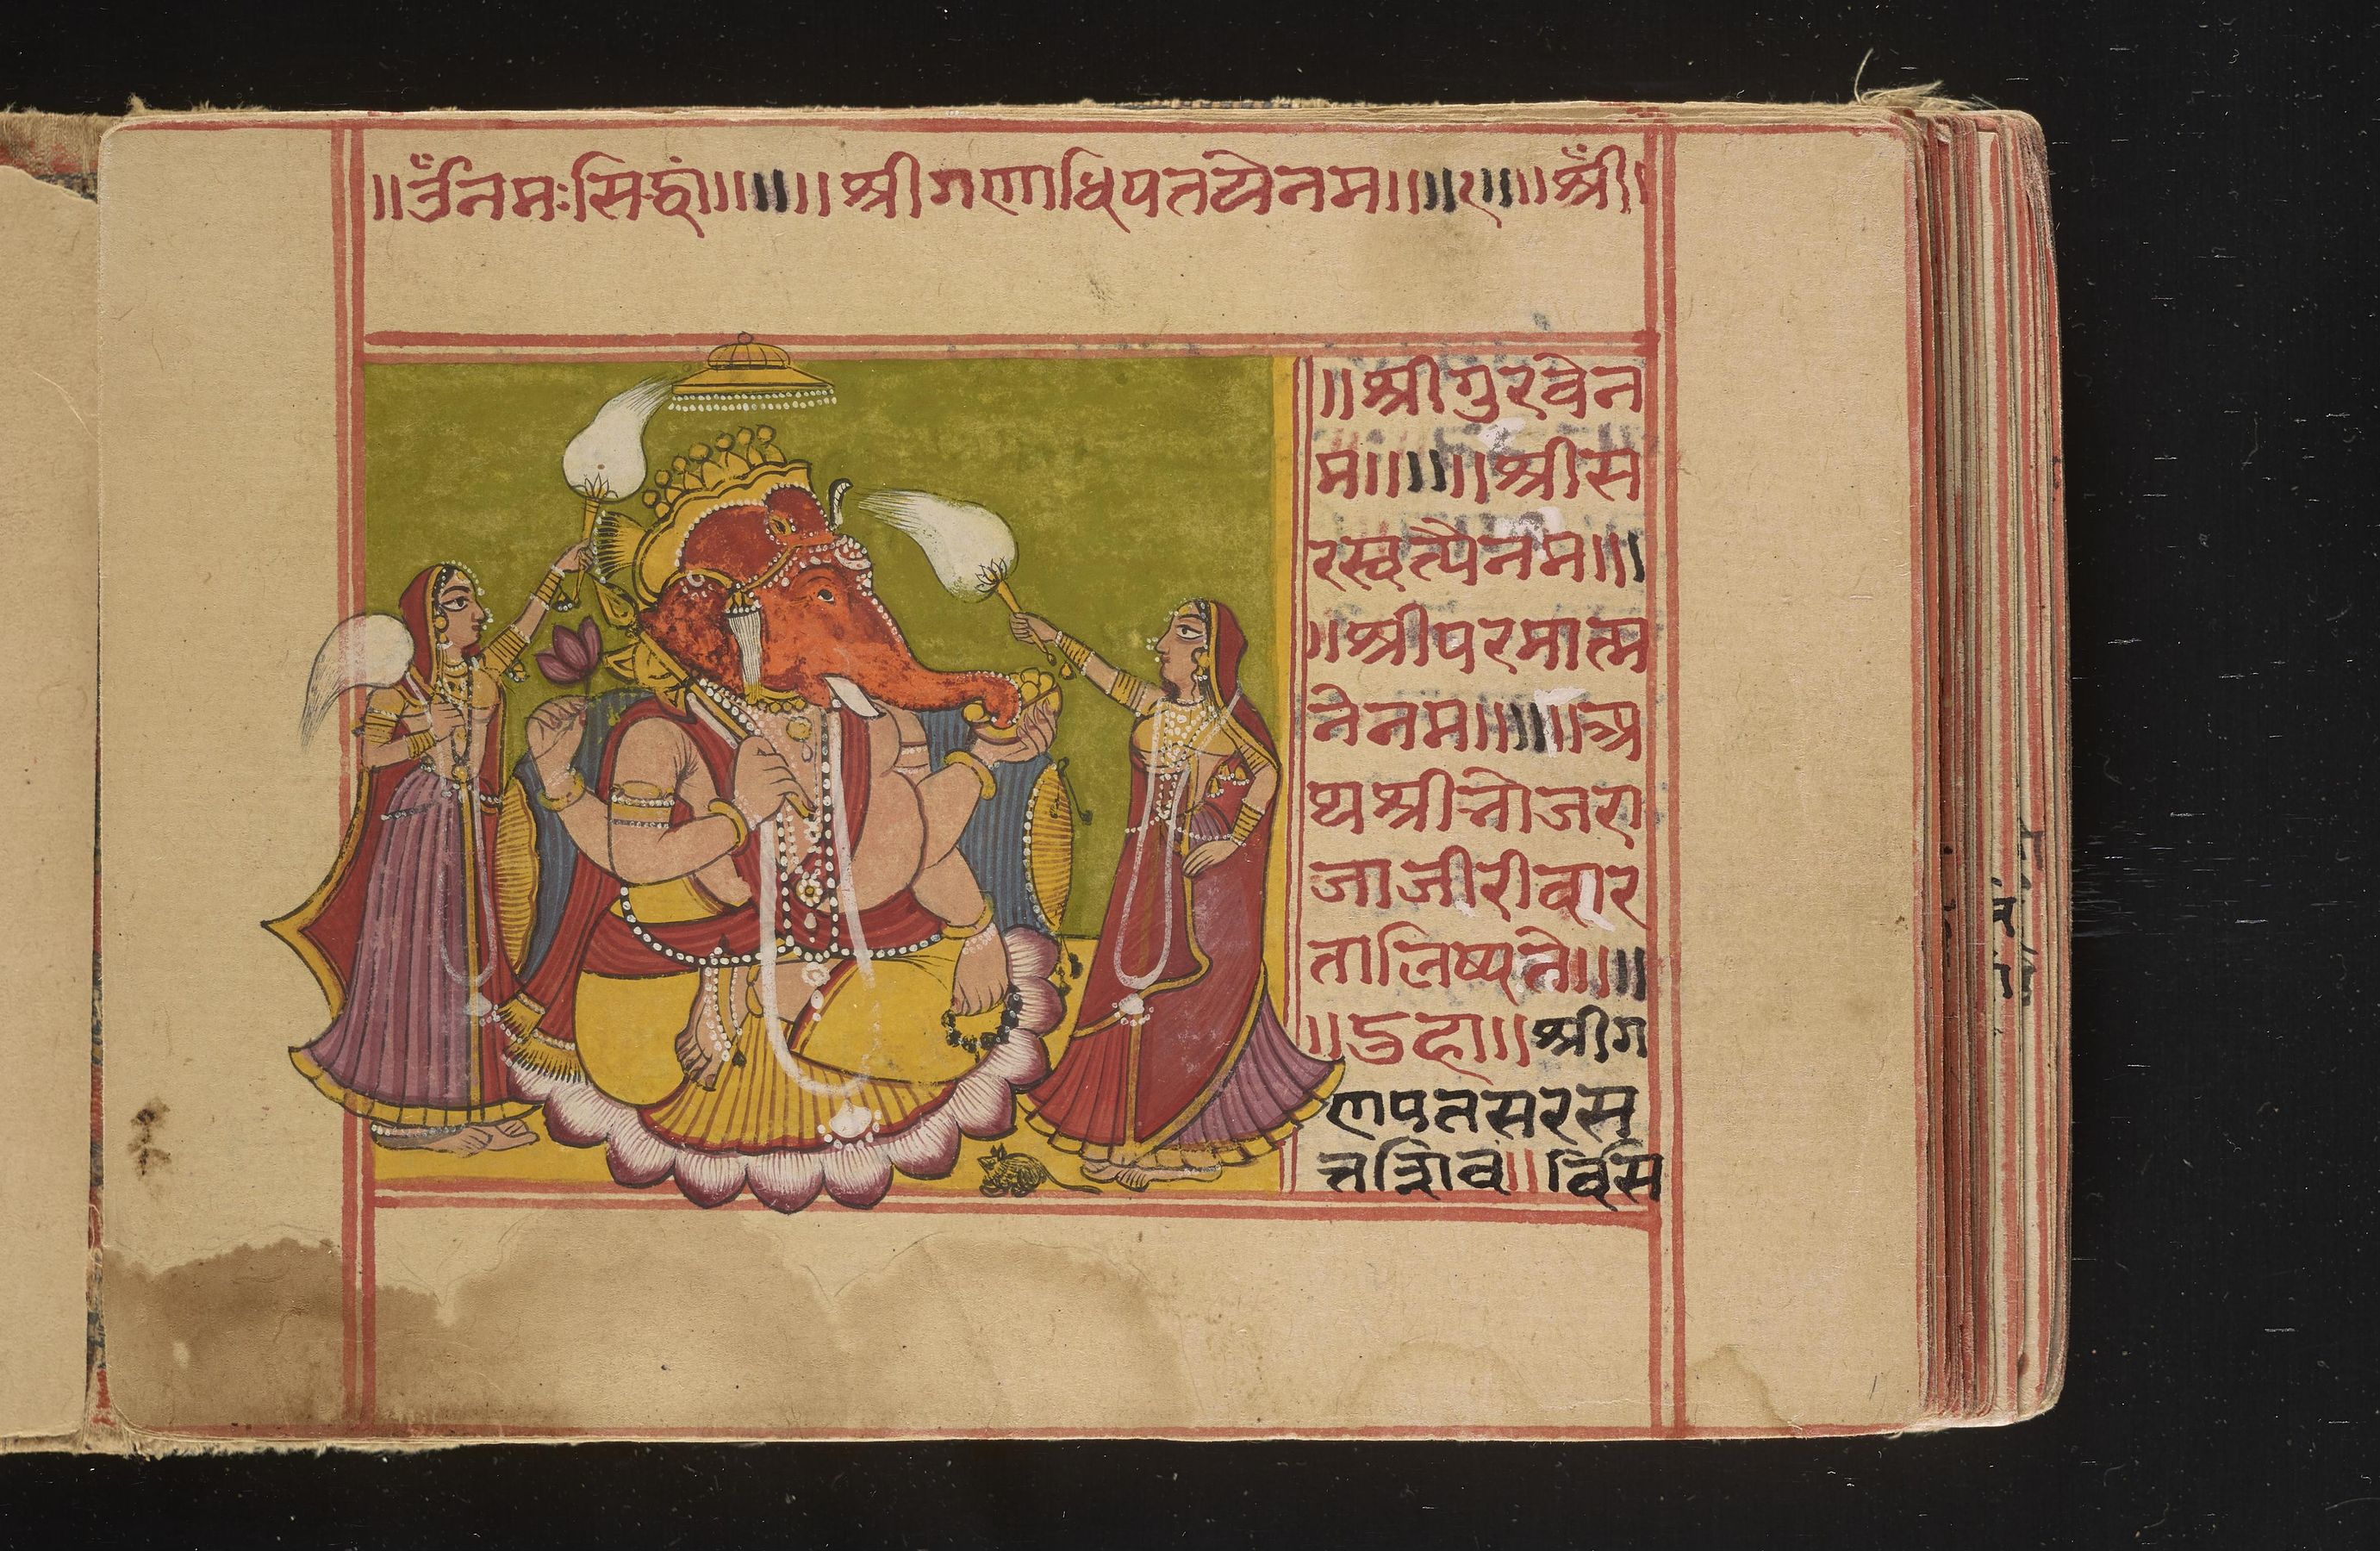 ॥ॐनमःसिद्धं॥॥॥॥श्रीगणाधिपतयेनम॥॥॥ए॥॥श्रीं।
॥श्रीगुरवेन
म॥॥॥॥श्रीस
रस्वत्यैनम॥॥
॥श्रीपरमात्म
नेनम॥॥॥॥अ
थश्रीनोजरा
जाजीरीवार
तालिष्यते॥॥
॥डुहा॥॥श्रीग
णपतसरस
त्तशिव॥विस